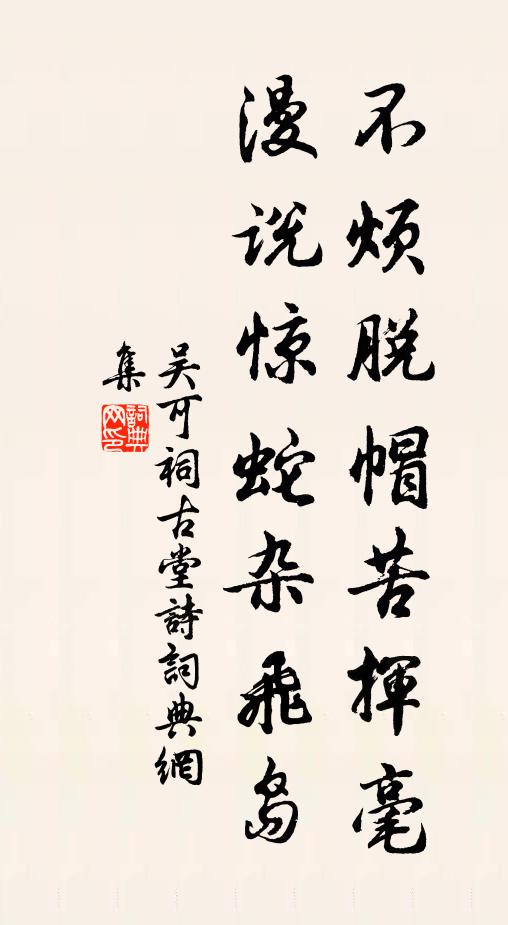 不烦脱帽苦揮毫
漫说惊蛇杂飛鸟
吴可祠古堂詩詞典網
集
詞典网印